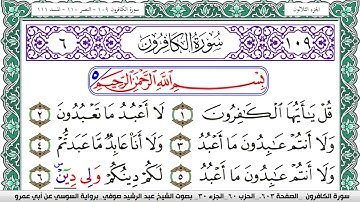 الجزء الثلاثون
سورة الكافرون ١٠٩ - النصر ١١٠ - المسد ١١١
١٠٩ سُورَةُ الكَافِرُونَ ٦
بِسْمِ اللَّهِ الرَّحْمَٰنِ الرَّحِيمِ
قُلْ يَٰأَيُّهَا ٱلْكَٰفِرُونَ ١ لَا أَعْبُدُ مَا تَعْبُدُونَ ٢
وَلَا أَنتُمْ عَٰبِدُونَ مَا أَعْبُدُ ٣ وَلَا أَنَا عَابِدٌ مَّا عَبَدتُّمْ ٤
وَلَا أَنتُمْ عَٰبِدُونَ مَا أَعْبُدُ ٥ لَكُمْ دِينُكُمْ وَلِى دِينِ ٦
سورة الكافرون الصفحة ٦٠٣ الحزب ٦٠ الجزء ٣٠ بصوت الشيخ عبد الرشيد صوفي برواية السوسي عن أبي عمرو